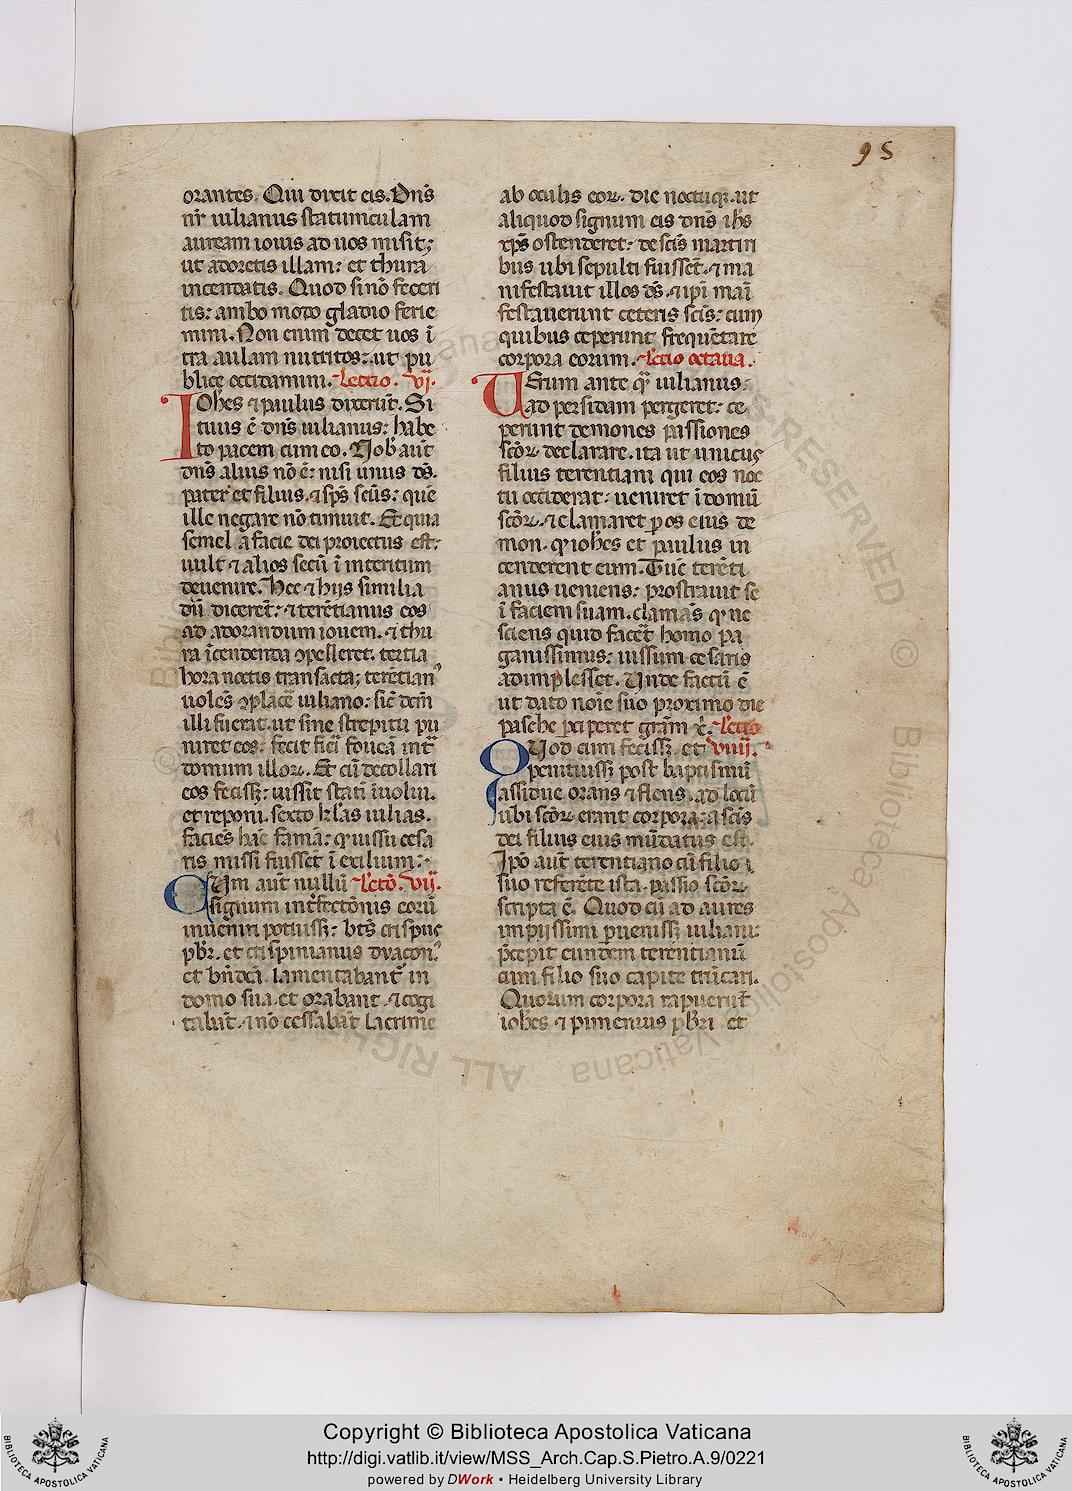 95
orantes. Qui dixit eis. Dn̄s
nr̄ iulianus statuniculam
auream iouis ad uos misit;
ut adoretis illam: et thura
incendatis. Quod si nō feceri
tis: ambo modo gladio ferie
mini. Non enim decet uos ī
tra aulam nutritos: ut pu
blice occidamini. Lectio. vi.
IOh̄es ⁊ paulus dixerūt. Si
tuus ē dn̄s iulianus: habe
to pacem cum eo. Nob̄ aūt
dn̄s alius nō ē: nisi unus ds̄.
pater et filius. ⁊ sp̄s scūs: quē
ille negare nō timuit. Et quia
semel a facie dei proiectus est:
uult ⁊ alios secū ī interitum
deuenire. Hec ⁊ hijs similia
dū diceret̄: ⁊ terētianus eos
ad adorandum iouem. ⁊ thu
ra īcendenda ꝯpelleret. tertia
hora noctis transacta; terētian᾽
uolēs ꝯplacē iuliano: sic̄ dem̄
illi fuerat. ut sine strepitu pu
niret eos: fecit fieī foueā int᷑
domum illoꝝ. Et cū decollari
eos fecissꝫ: iussit statī īuolui.
et reponi. sexto kl̄as iulias.
faciēs hāc famā: ꝙ iussu cesa
ris missi fuissēt ī exilium:
CUm aūt nullū Lectō. vii.
signum int̄fectōnis eorū
inueniri potuissꝫ: bt̄s crispus
pb̄r. et crispinianus dyacon᾽
et bn̄dc̄a lamentabant᷑ in
domo sua. et orabant. ⁊ cogi
tabāt. ⁊ nō cessabāt lacrime
ab oculis eoꝝ. die noctuqꝫ. ut
aliquod signum eis dn̄s ih̄s
xp̄s ostenderet: de scīs martiri
bus ubi sepulti fuissēt. ⁊ ma
nifestauit illos ds̄. ⁊ ip̄i maī
festauerunt ceteris scīs: cum
quibus ceperunt frequētare
corpora eorum. Lectio octaua.
UErum ante ꝙ iulianus
ad persidam pergeret: ce
perunt demones passiones
scōꝝ. declarare. ita ut unicus
filius terentiani qui eos noc
tu occiderat: ueniret ī domū
scōꝝ. ⁊ clamaret p os eius de
mon. ꝙ ioh̄es et paulus in
cenderent eum. Tūc terēti
anus ueniens: prostrauit se
ī faciem suam. clamās ꝙ ne
sciens quid facēt homo pa
ganissimus: iussum cesaris
adimplesset. Unde factū ē
ut dato noīe suo proximo die
pasche perciperet grām xī. Lectio
QUod cum fecissꝫ. et viiij.
penituissꝫ post baptismū
assidue orans ⁊ flens. ad locū
ubi scōꝝ erant corpora: a scīs
dei filius eius mūdatus est.
Ipō aūt terentiano cū filio ī
suo referēte ista passio scōꝝ
scripta ē. Quod cū ad aures
impijssimi puenissꝫ iuliani:
p̄cepit eundem terentianū
cum filio suo capite trūcari.
Quorum corpora rapuerūt
ioh̄es ⁊ pimenius pb̄ri et
Copyright © Biblioteca Apostolica Vaticana
http://digi.vatlib.it/view/MSS_Arch.Cap.S.Pietro.A.9/0221
powered by DWork • Heidelberg University Library